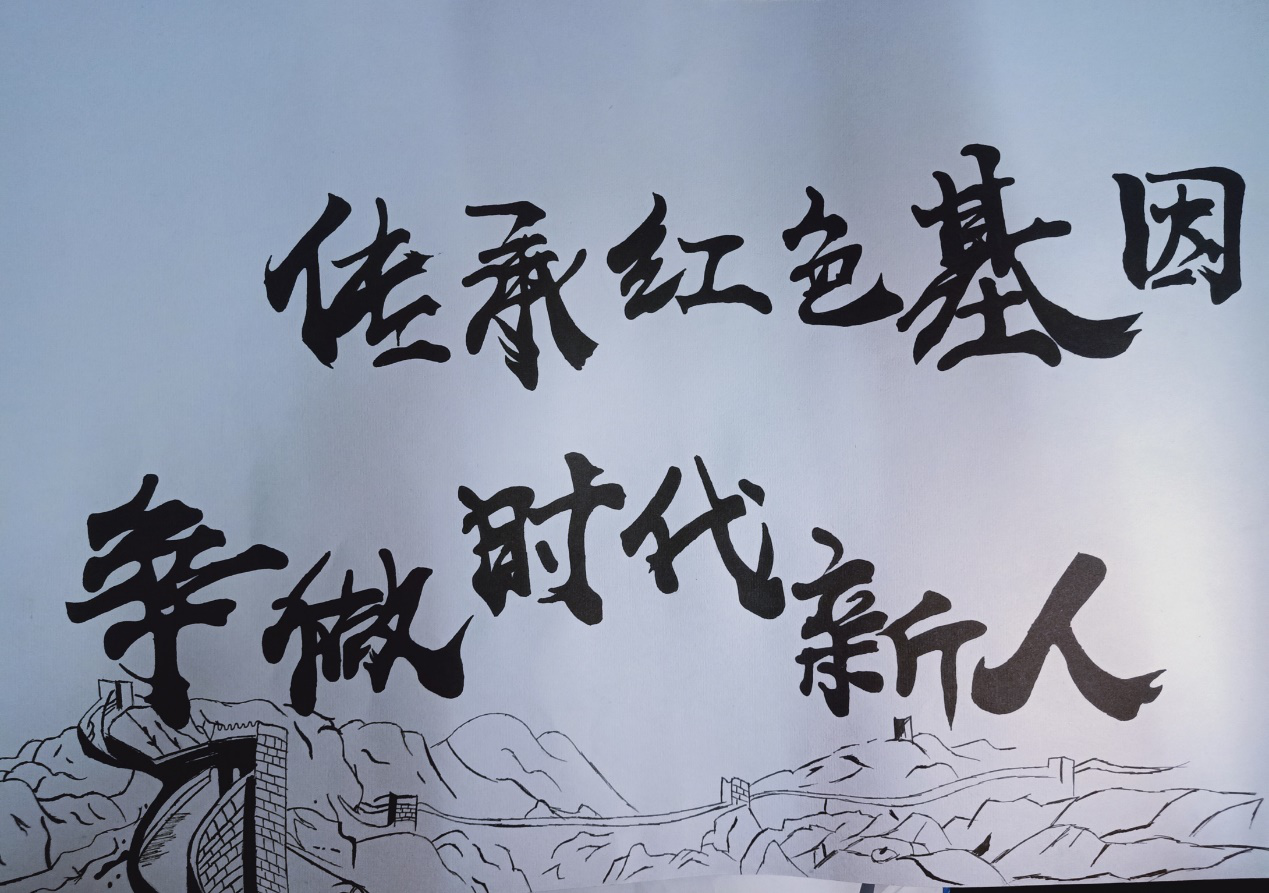 传承红色基因
争做时代新人